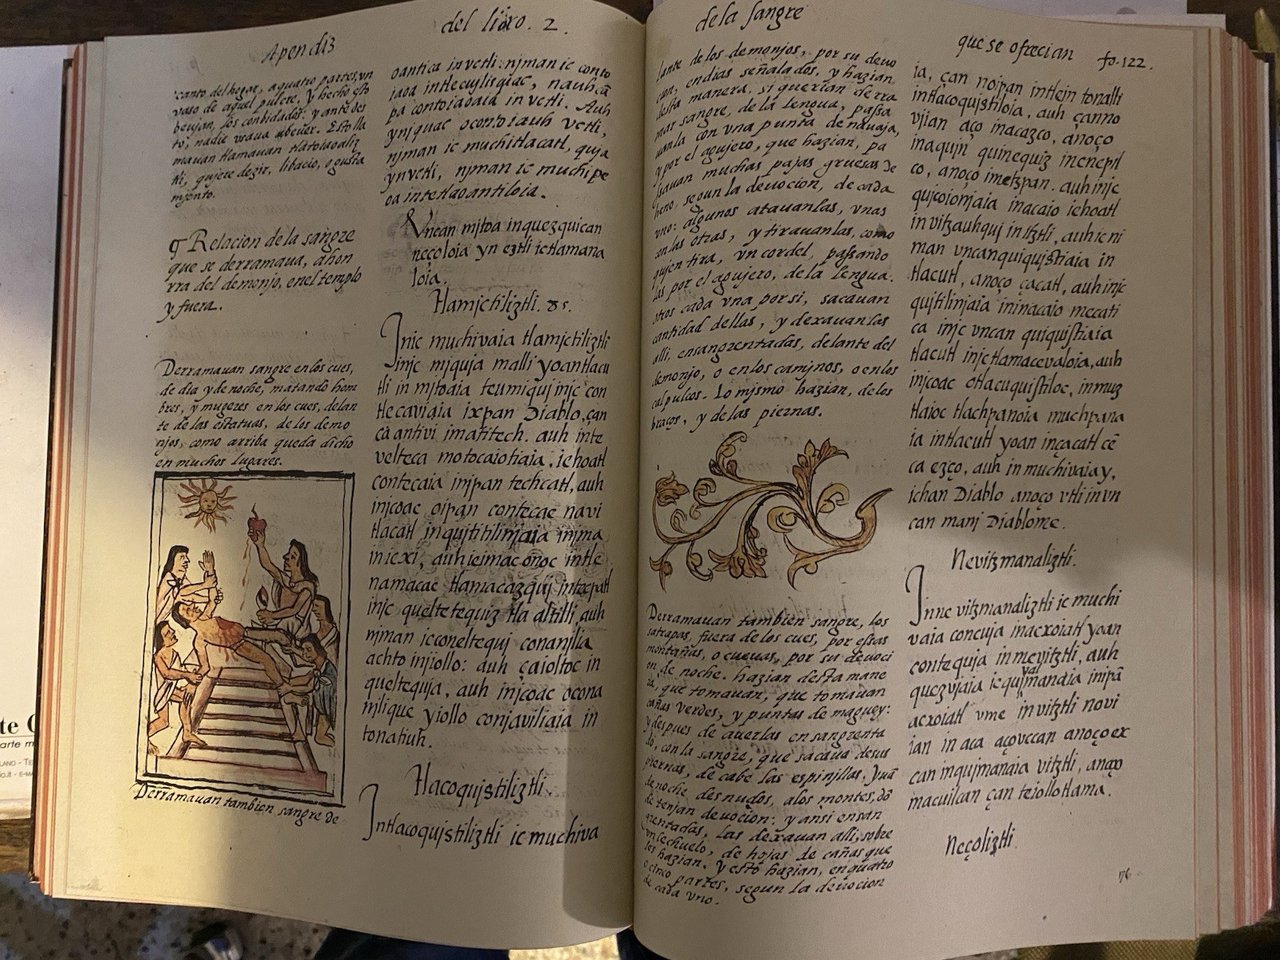 Apendiz
del libro. 2.
canto del hogar, a quatro partes, vn
vaso de aquel pulcre, y hecho esto
beujan, los conbidados: y ante des
to, nadie vsaua abeuer. Esto lla
mauan tlamauan tlatoiaoaliz
tli, qujere dezir, libacio, o gusta
mjento.
¶ Relacion de la sangre
que se derramaua, a hon
rra del demonjo, enel templo
y fuera.
Derramauan sangre en los cues,
de dia y de noche, matando hom
bres, y mugeres en los cues, delan
te de las estatuas, de los demo
njos, como arriba queda dicho
en muchos lugares.
Derramauan tambien sangre de
oantica in vctli: njman ic conto
iaoa intlecujlisquac, nauhcã
pa contoiaoaia in vctli. Auh
yn jquac oconto iauh vctli,
njman ic muchitlacatl, quja
yn vctli, njman ic muchi pe
oa intetlaoantiloia.
Vncan mjtoa inquezquican
neçoloia yn eztli ic tlamana
loia.
Tlamjctiliztli. &c.
Inic muchivaia tlamjctiliztli
injc mjquja malli yoan tlacu
tli in mjtoaia teumiqui injc con
tlecaviaia ixpan Diablo, çan
cà antivi imatitech. auh inte
velteca motocaiotiaia, iehoatl
contecaia injpan techcatl, auh
injcoac oipan contecac navi
tlacatl inquititilinjaia inima
in icxi, auh ie imac onoc intle
namacac tlamacazqui intecpatl
injc queltetequiz tlaaltilli, auh
njman ic coneltequi conanilia
achto injiollo: auh çaioltoc in
queltequja, auh injcoac ocona
nilique yiollo conjaviliaia in
tonatiuh.
Tlacoqujstiliztli
Intlacoqujstiliztli ic muchiva
de la sangre
que se ofrecian
fo. 122.
lante de los demonjos, por su deuo
cion, en dias señalados, y hazian
desta manera. si querian derra
mar sangre, de la lengua, passa
uanla con vna punta de nauaja,
y por el agujero, que hazian, pa
ssauan muchas pajas gruesas de
heno, segun la deuocion, de cada
vno: algunos atauanlas, vnas
en las otras, y tirauanlas, como
quien tira, vn cordel, passando
las por el agujero, de la lengua.
otros cada vna por si, sacauan
cantidad dellas, y dexauanlas
alli, ensangrentadas, delante del
demonjo, o en los camjnos, o en los
calpulcos. Lo mismo hazian, de los
braços, y de las piernas.
Derramauan tambien sangre, los
satrapas, fuera de los cues, por essas
montañas, o cueuas, por su deuoci
on de noche. hazian desta mane
ra, que tomauan, que tomauan
cañas verdes, y puntas de maguey:
y despues de auerlas ensangrenta
do, con la sangre, que sacauã de sus
piernas, de cabe las espinjllas, yuã
de noche desnudos, a los montes, dõ
de tenjan deuoçion: y ansi ensan
grentadas, las dexauan alli, sobre
vn lechuelo, de hojas de cañas que
les hazian. y esto hazian, en quatro
o cinco partes, segun la deuocion
de cada vno.
ia, çan noipan intlein tonalli
intlacoqujstiloia, auh çanno
vjian aço inacazco, anoço
inaqujn quinequiz inenepil
co, anoço imetzpan. auh injc
qujcoionjaia inacaio iehoatl
in vitzauhqui in itztli, auh ic ni
man vncan quiquistiaia in
tlacutl, anoço çacatl, auh injc
quititilinjaia in inacaio mecati
ca injc vncan quiquistiaia
tlacutl injc tlamacevaloia, auh
injcoac otlacuquistiloc, in muz
tlaioc tlachpanoia muchpana
ia intlacutl yoan in çacatl cẽ
ca ezço, auh in muchivaia y,
ichan Diablo anoço vtli in vn
can manj Diablome.
Nevitzmanaliztli.
Injc vitzmanaliztli ic muchi
vaia concuja inacxoiatl yoan
contequja inmevitztli, auh
quezvjaia ic qujvalmandaia inpã
acxoiatl vme in vitztli novi
ian in aca açovccan anoço ex
can inqujmanaia vitztli, anoço
macuilcan çan teiollotlama.
Neçoliztli
176